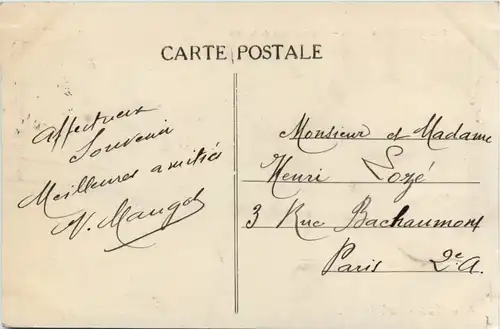 CARTE POSTALE
Affectueux
Souvenir
Meilleures amitiés
N. Maugol
Monsieur et Madame
Henri Lozé
3 Rue Bachaumont
Paris 2e A.